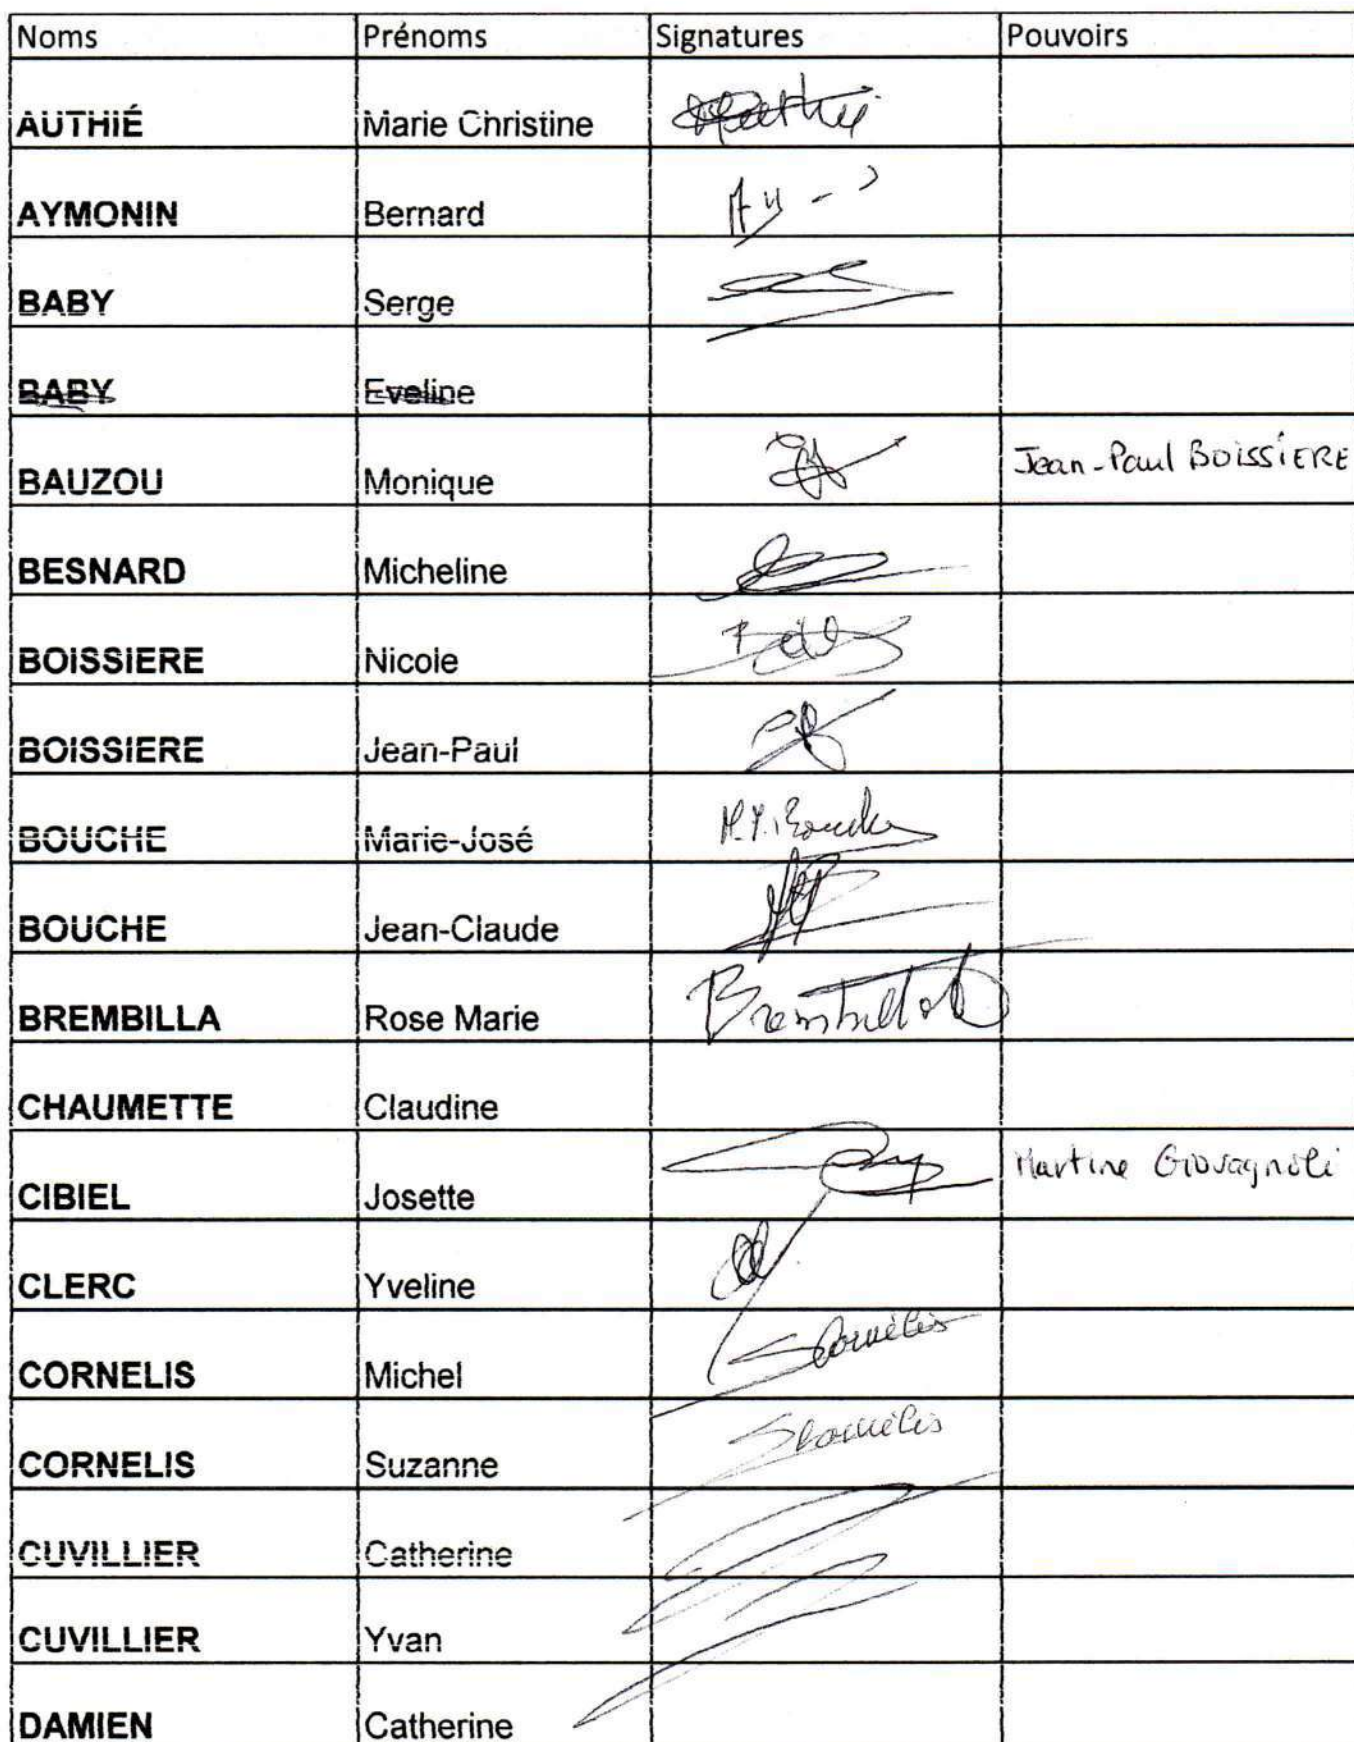 Noms Prénoms Signatures Pouvoirs
AUTHIÉ Marie Christine
AYMONIN Bernard
BABY Serge
BABY Eveline
BAUZOU Monique Jean-Paul BOISSIERE
BESNARD Micheline
BOISSIERE Nicole
BOISSIERE Jean-Paul
BOUCHE Marie-José
BOUCHE Jean-Claude
BREMBILLA Rose Marie
CHAUMETTE Claudine
CIBIEL Josette Martine Giovagnoli
CLERC Yveline
CORNELIS Michel SCornélis
CORNELIS Suzanne SCornélis
CUVILLIER Catherine
CUVILLIER Yvan
DAMIEN Catherine